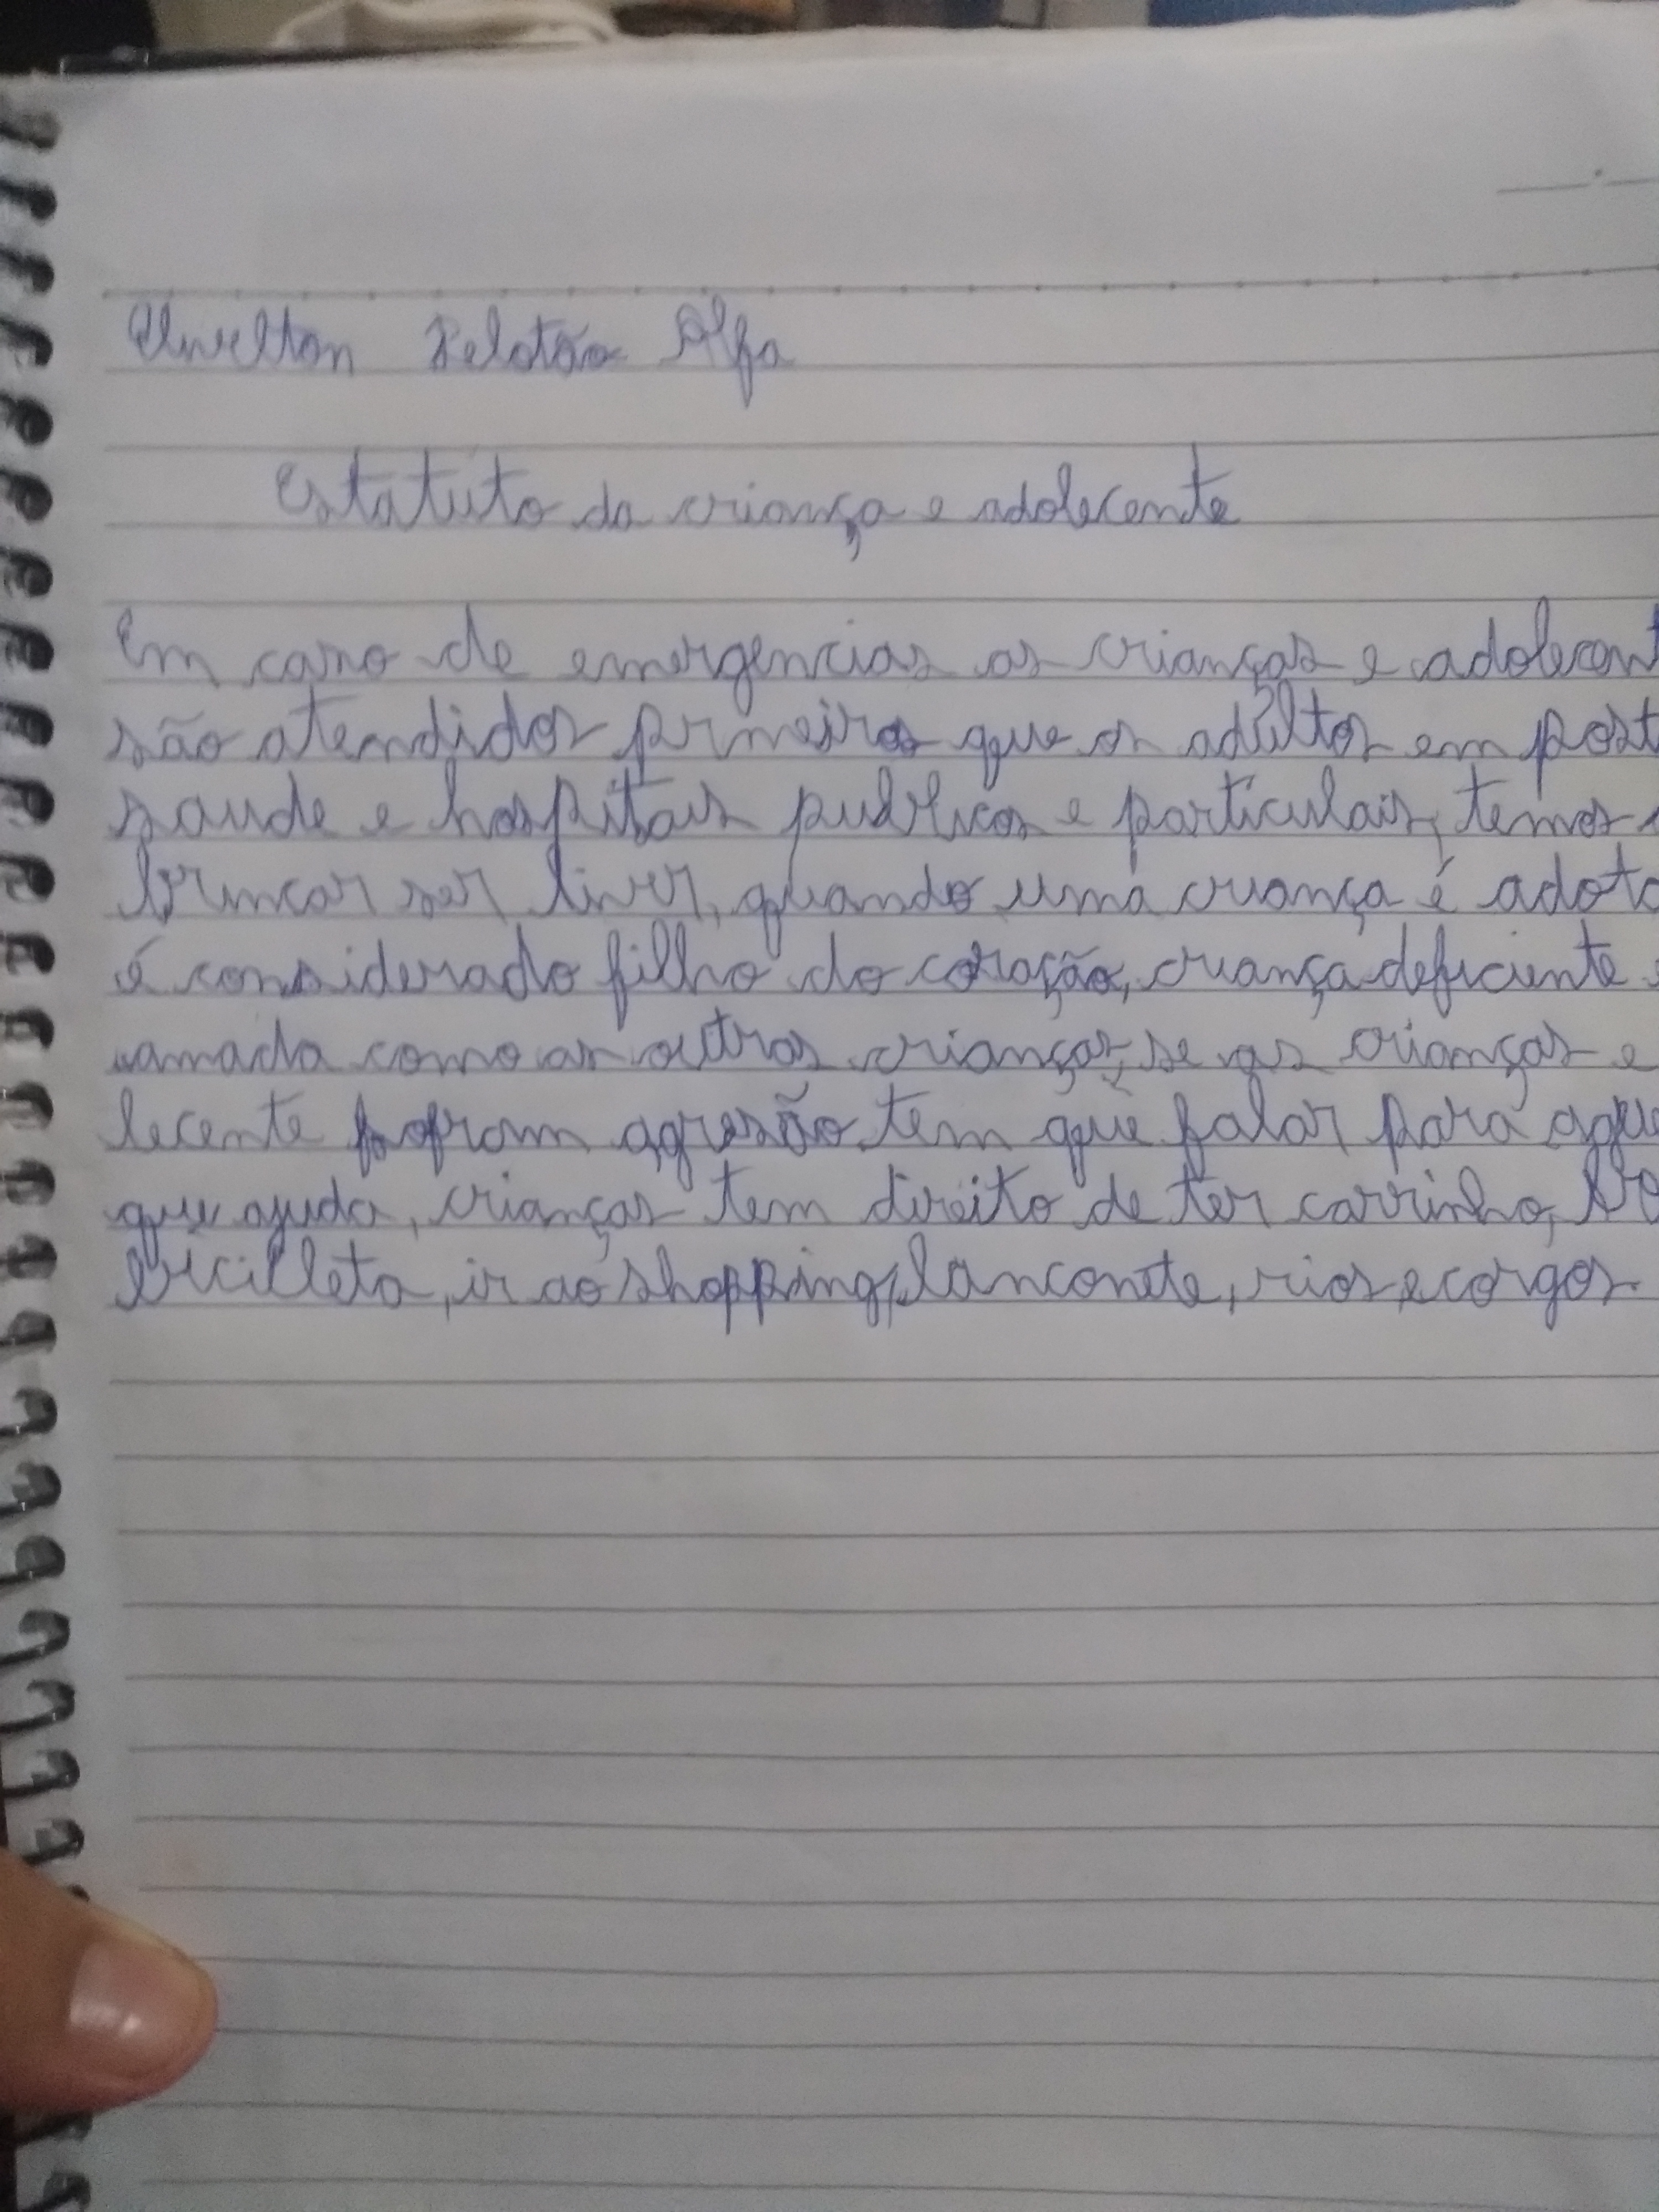 Pelotão Alfa
Estatuto da criança e adolecente
Em caso de emergencias as crianças e adolecent
são atendidos primeiros que os adultos em post
saude e hospitais publicos e particulais, temos
brincar ser livir, quando uma criança é adota
é considerado filho do coração, criança deficiente
amada como as outras crianças, se as crianças e
lecente sofram agresão tem que falar para aque
que ajuda, crianças tem direito de ter carrinho,
bicicleta, ir ao shopping, lanconete, rios, e corgos.